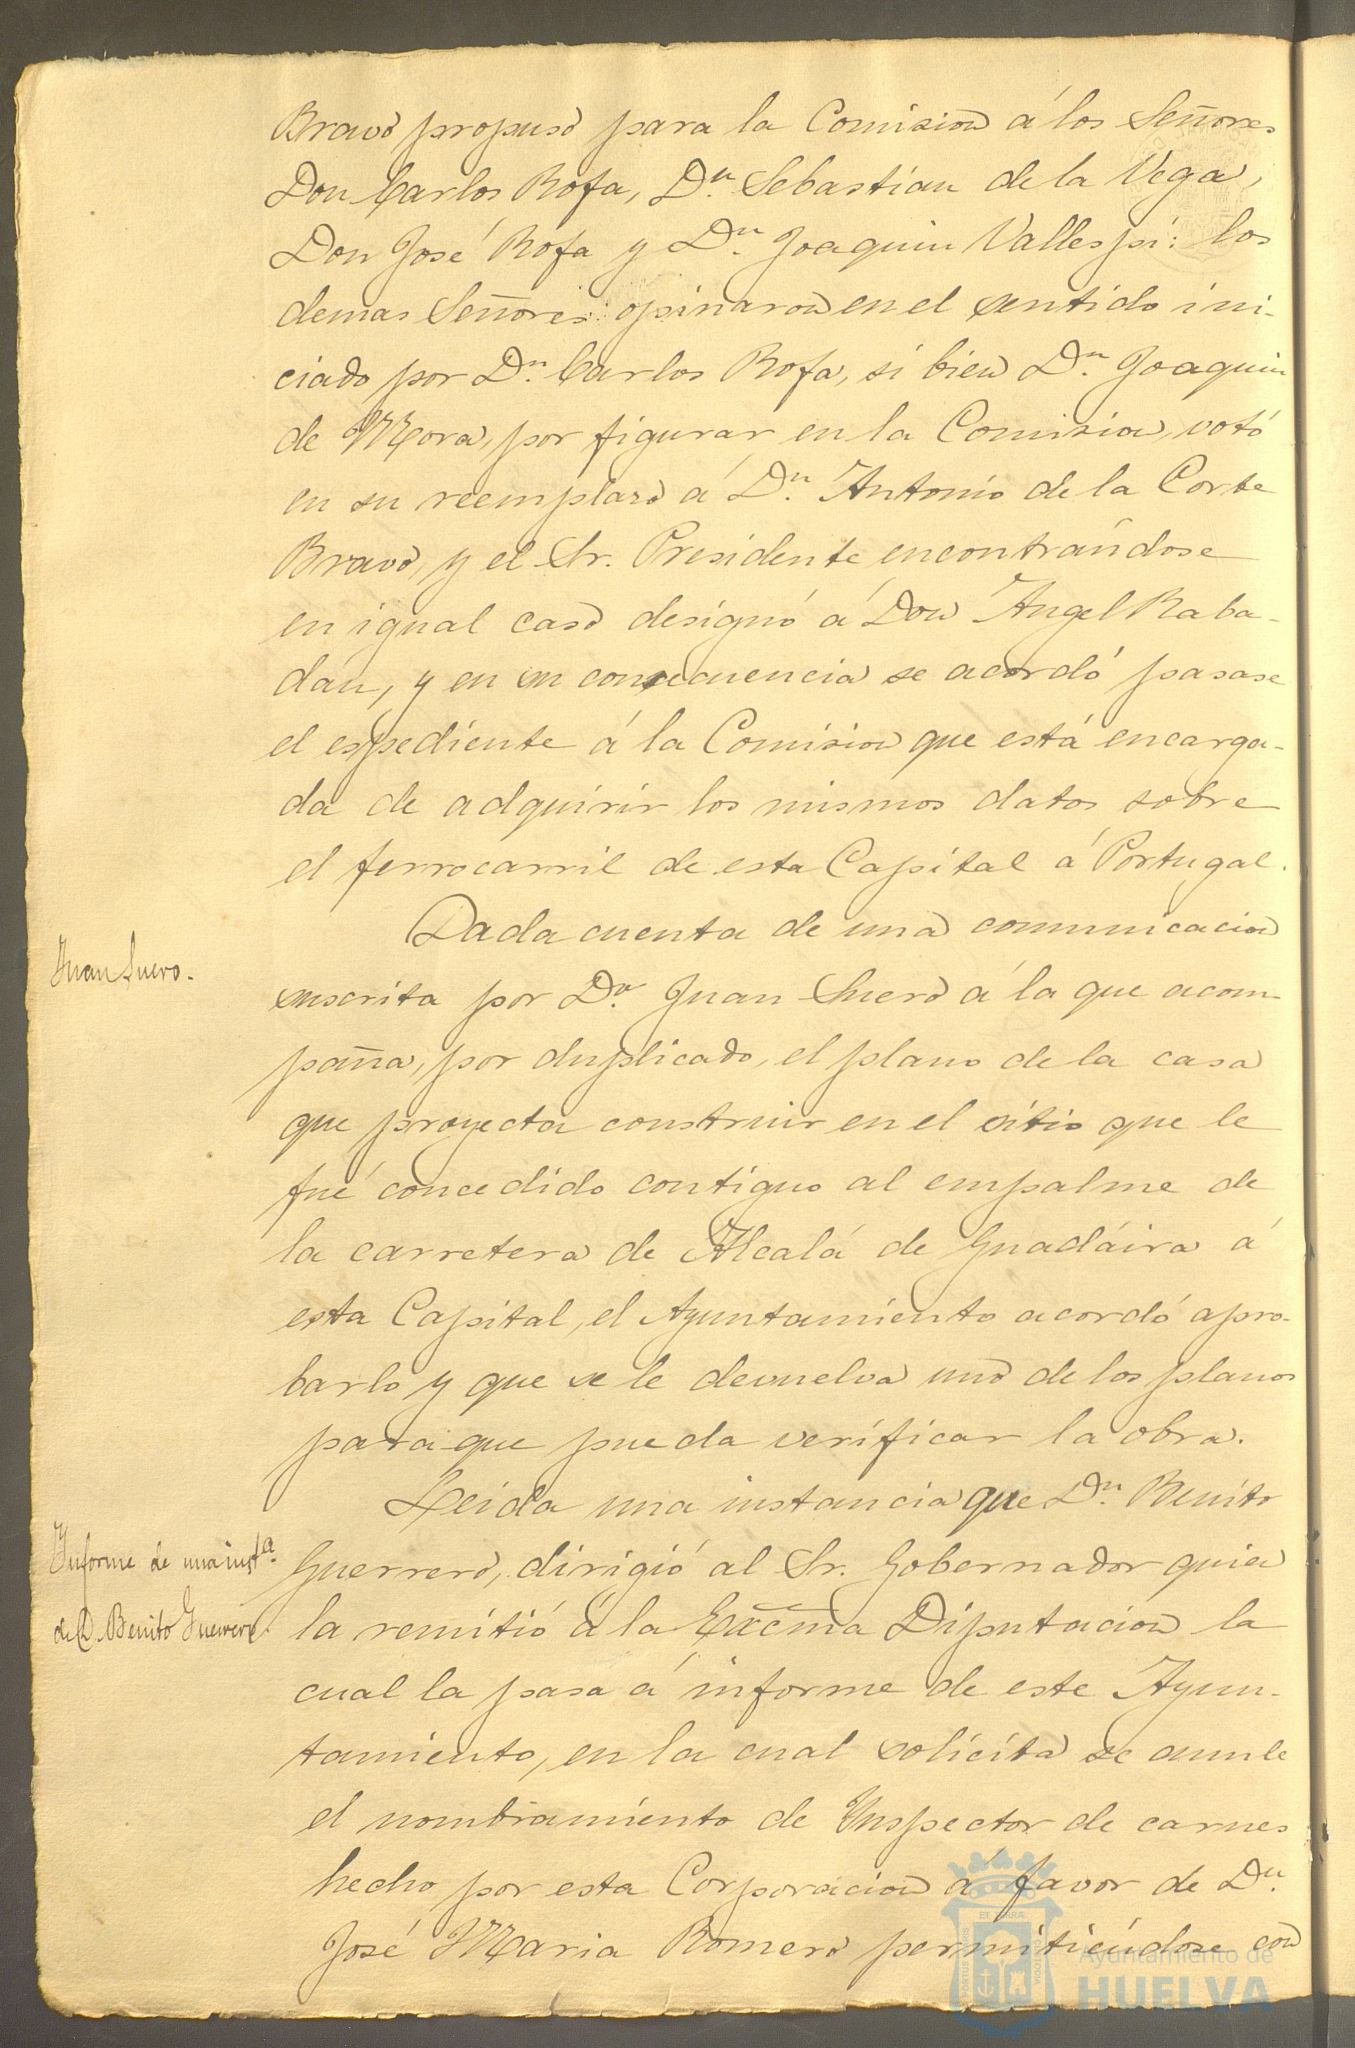 Bravo propuso para la Comision á los Señores
Don Carlos Rofa, Dn. Sebastian de la Vega,
Don José Rofa y Dn. Joaquin Vallespi: los
demas Señores opinaron en el sentido ini-
ciado por Dn. Carlos Rofa, si bien Dn. Joaquin
de Mora, por figurar en la Comision, votó
en su reemplazo á Dn. Antonio de la Corte
Bravo, y el Sr. Presidente encontrándose
en igual caso designó á Don Ángel Raba-
dan, y en su consecuencia se acordó pasase
el espediente á la Comision que está encarga-
da de adquirir los mismos datos sobre
el ferrocarril de esta Capital á Portugal.
Juan Suero.
Dada cuenta de una comunicacion
suscrita por Dn. Juan Suero á la que acom-
paña, por duplicado, el plano de la casa
que proyecta construir en el sitio que le
fué concedido contiguo al empalme de
la carretera de Alcalá de Guadáira á
esta Capital, el Ayuntamiento acordó apro-
barlo y que se le devuelva uno de los planos
para que pueda verificar la obra.
Leida una instancia que Dn. Benito
Informe de una insta.
de D. Benito Guerrero.
Guerrero, dirigió al Sr. Gobernador quien
la remitió á la Excma Diputacion la
cual la pasa á informe de este Ayun-
tamiento, en la cual solicita se anule
el nombramiento de Inspector de carnes
hecho por esta Corporacion á favor de Dn.
José Maria Romero permitiéndose con
Ayuntamiento de
HUELVA